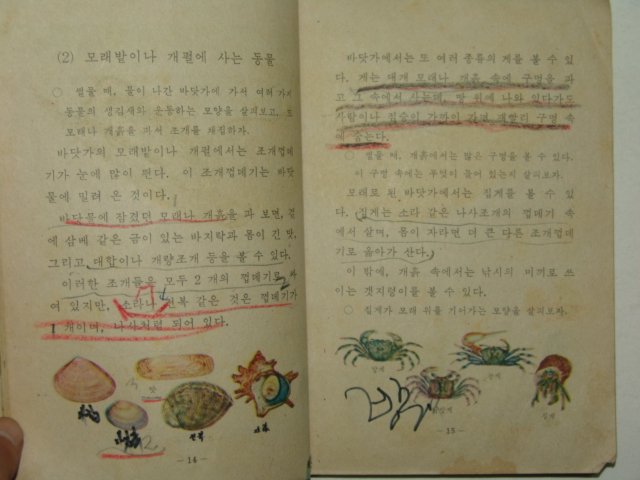 (2) 모래밭이나 개펄에 사는 동물
○ 썰물 때, 물이 나간 바닷가에 가서 여러 가지
동물의 생김새와 운동하는 모양을 살펴보고, 또
모래나 개흙을 파서 조개를 채집하자.
바닷가의 모래밭이나 개펄에서는 조개껍데
기가 눈에 많이 띈다. 이 조개껍데기는 바닷
물에 밀려 온 것이다.
바닷물에 잠겼던 모래나 개흙을 파 보면, 겉
에 삼베 같은 금이 있는 바지락과 몸이 긴 맛,
그리고 대합이나 개량조개 등을 볼 수 있다.
이러한 조개들은 모두 2 개의 껍데기로
여 있지만, 소라나 전복 같은 것은 껍데기가
1 개이며, 나사처럼 되어 있다.
맛
전복
－14－
바닷가에서는 또 여러 종류의 게를 볼 수 있
다. 게는 대개 모래나 개흙 속에 구멍을 파
고 그 속에서 사는데, 땅 위에 나와 있다가도
사람이나 짐승이 가까이 가면 재빨리 구멍 속
에 숨는다.
○ 썰물 때, 개흙에서는 많은 구멍을 볼 수 있다.
이 구멍 속에는 무엇이 들어 있는지 살펴보자.
모래로 된 바닷가에서는 집게를 볼 수 있
다. 집게는 소라 같은 나사조개의 껍데기 속
에서 살며, 몸이 자라면 더 큰 다른 조개껍데
기로 옮아가 산다.
이 밖에, 개흙 속에서는 낚시의 미끼로 쓰
이는 갯지렁이를 볼 수 있다.
○ 집게가 모래 위를 기어가는 모양을 살펴보자.
집게
－15－